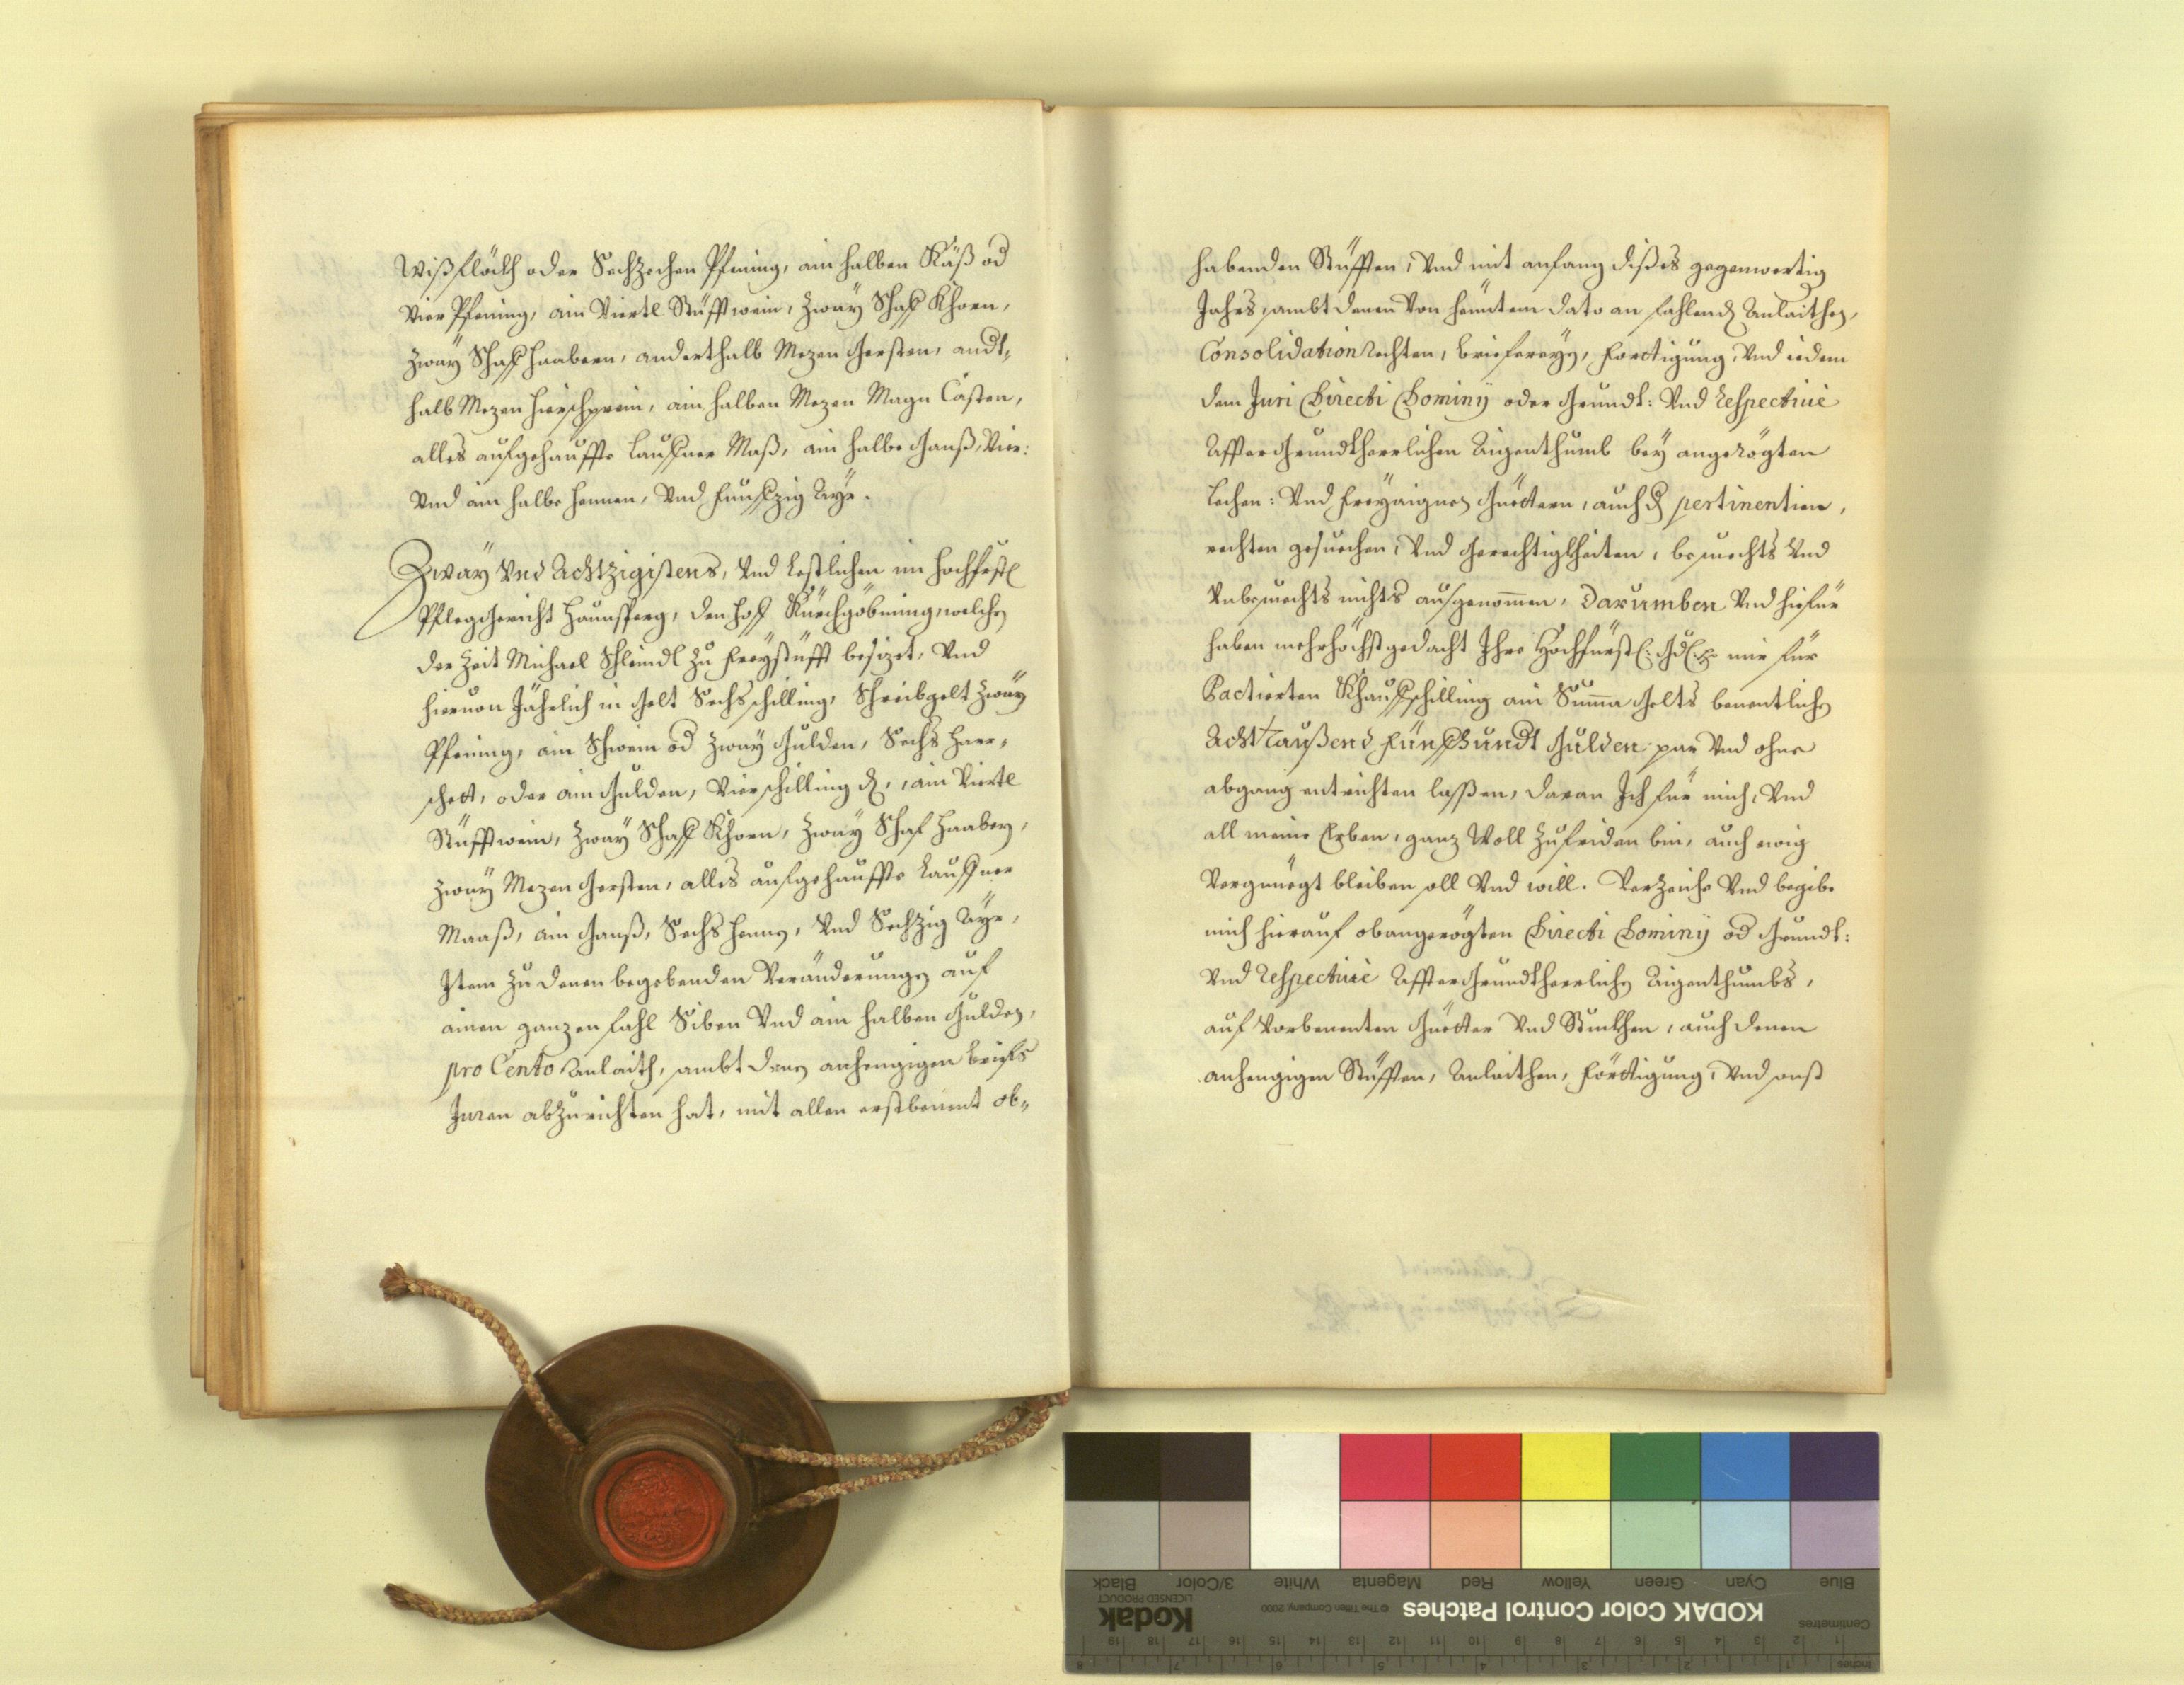 Wißflöckh oder Sechzechen Pfening, ain halben Käß od
Vier Pfening, ain Viertl Stüfftwein, Zway Schaf Khorn,
Zway Schaf Haabern, anderthalb Mezen Gersten, andt„
halb Mezen Hierschprein, ain halben Mezen Magn Cästen,
alles aufgehauffte Lauffner Maß, ain halbe Ganß, Vier:
Vnd ain halbe Hennen, Vnd Funfzig Ayr.
Zway Vnd Achtzigistens, Vnd Lestlichen im Hochfrstl
Pfleggericht Haunsperg, den Hof Kürchgöbming, welchen
der Zeit Michael Schleindl Zu Freystüfft besizet, Vnd
hieruon Jährlich in Gelt Sechsschilling, Schreibgelt Zway
Pfening, ain Schwein od Zway Gulden, Sechs Haar„
schett, oder ain Gulden, Vierschilling d, ain Viertl
Stüfftwein, Zway Schaf Khorn, Zway Schaf Haabern,
Zway Mezen Gersten, alles aufgehauffte Lauffner
Maaß, ain Ganß, Sechs Hennen, Vnd Sechzig Ayr,
Item Zu denen begebenden Veränderungen auf
ainen ganzen fahl Siben Vnd ain halben Gulden,
pro Cento Anlaith, sambt denen anhengigen briefs
Juren abzurichten hat, mit allen erstbenent ob„
habenden Stüfften, Vnd mit anfang dißes gegenwertig
Jahrs, sambt denen Von heüntem dato an fahlenden Anlaithen,
Consolidation rechten, briefereyen, Förttigung, Vnd iedem
dem Juri Directi Dominy oder Grundt: Vnd respectiuè
Affter Grundtherrlichen Aigenthumb bey angerögten
Lechen: Vnd freyaignen Guettern, auch d pertinentien,
rechten gesuechen, Vnd Gerechtigkheiten, besuechts Vnd
Vnbesuechts nichts ausgenommen, Darumben Vnd hiefür
haben mehrhöchstgedacht Ihro Hochfürstl: Gdl: mir für
Pactierten Khaufschilling ain Summa Gelts benentlichen
Acht Taußend Fünfhundt Gulden par Vnd ohne
abgang entrichten lassen, daran Ich für mich, Vnd
all meine Erben, ganz Woll Zufriden bin, auch ewig
Vergnüegt bleiben soll Vnd will. Verzeiche Vnd begibe
mich hierauf obangerögten Directi Dominy od Grundt:
Vnd respectiuè Affter Grundtherrlichen Aigenthumbs,
auf Vorbenenten Guetter Vnd Stuckhen, auch denen
anhengigen Stüfften, Anlaithen, Förttigung, Vnd sonst
KODAK Color Control Patches
© The Tiffen Company, 2000
Kodak
LICENSED PRODUCT
Blue Cyan Green Yellow Red Magenta White 3/Color Black
Centimetres
1 2 3 4 5 6 7 8 9 10 11 12 13 14 15 16 17 18 19
Inches
1 2 3 4 5 6 7 8